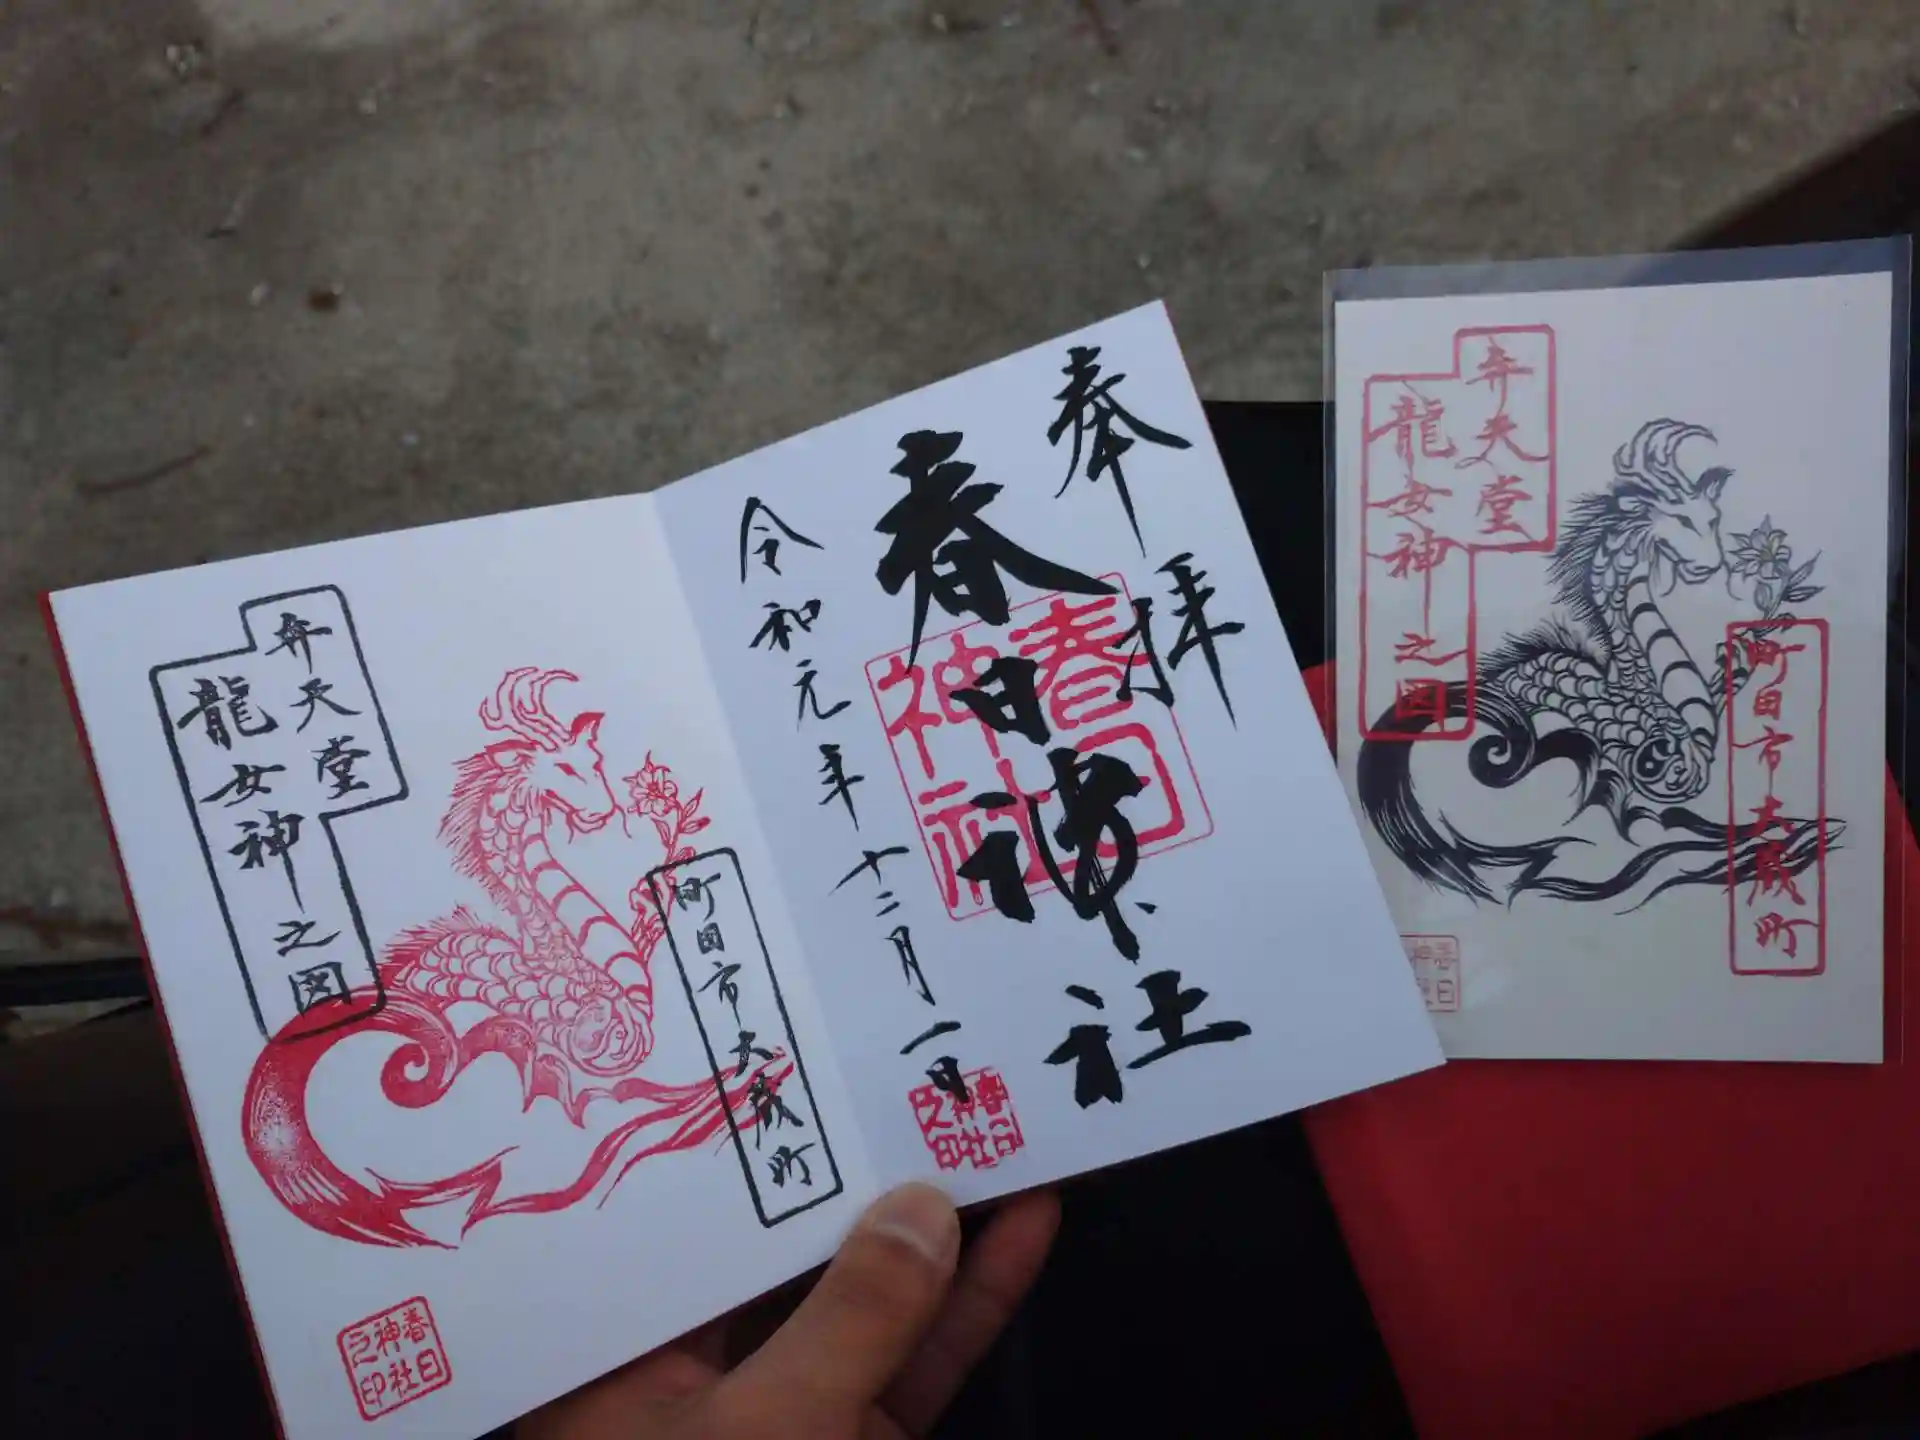 奉拝
春日神社
春日神社
令和元年十二月一日
春日神社之印
弁天堂
龍女神之図
町田市大蔵町
春日神社之印
弁天堂
龍女神之図
町田市大蔵町
春日神社